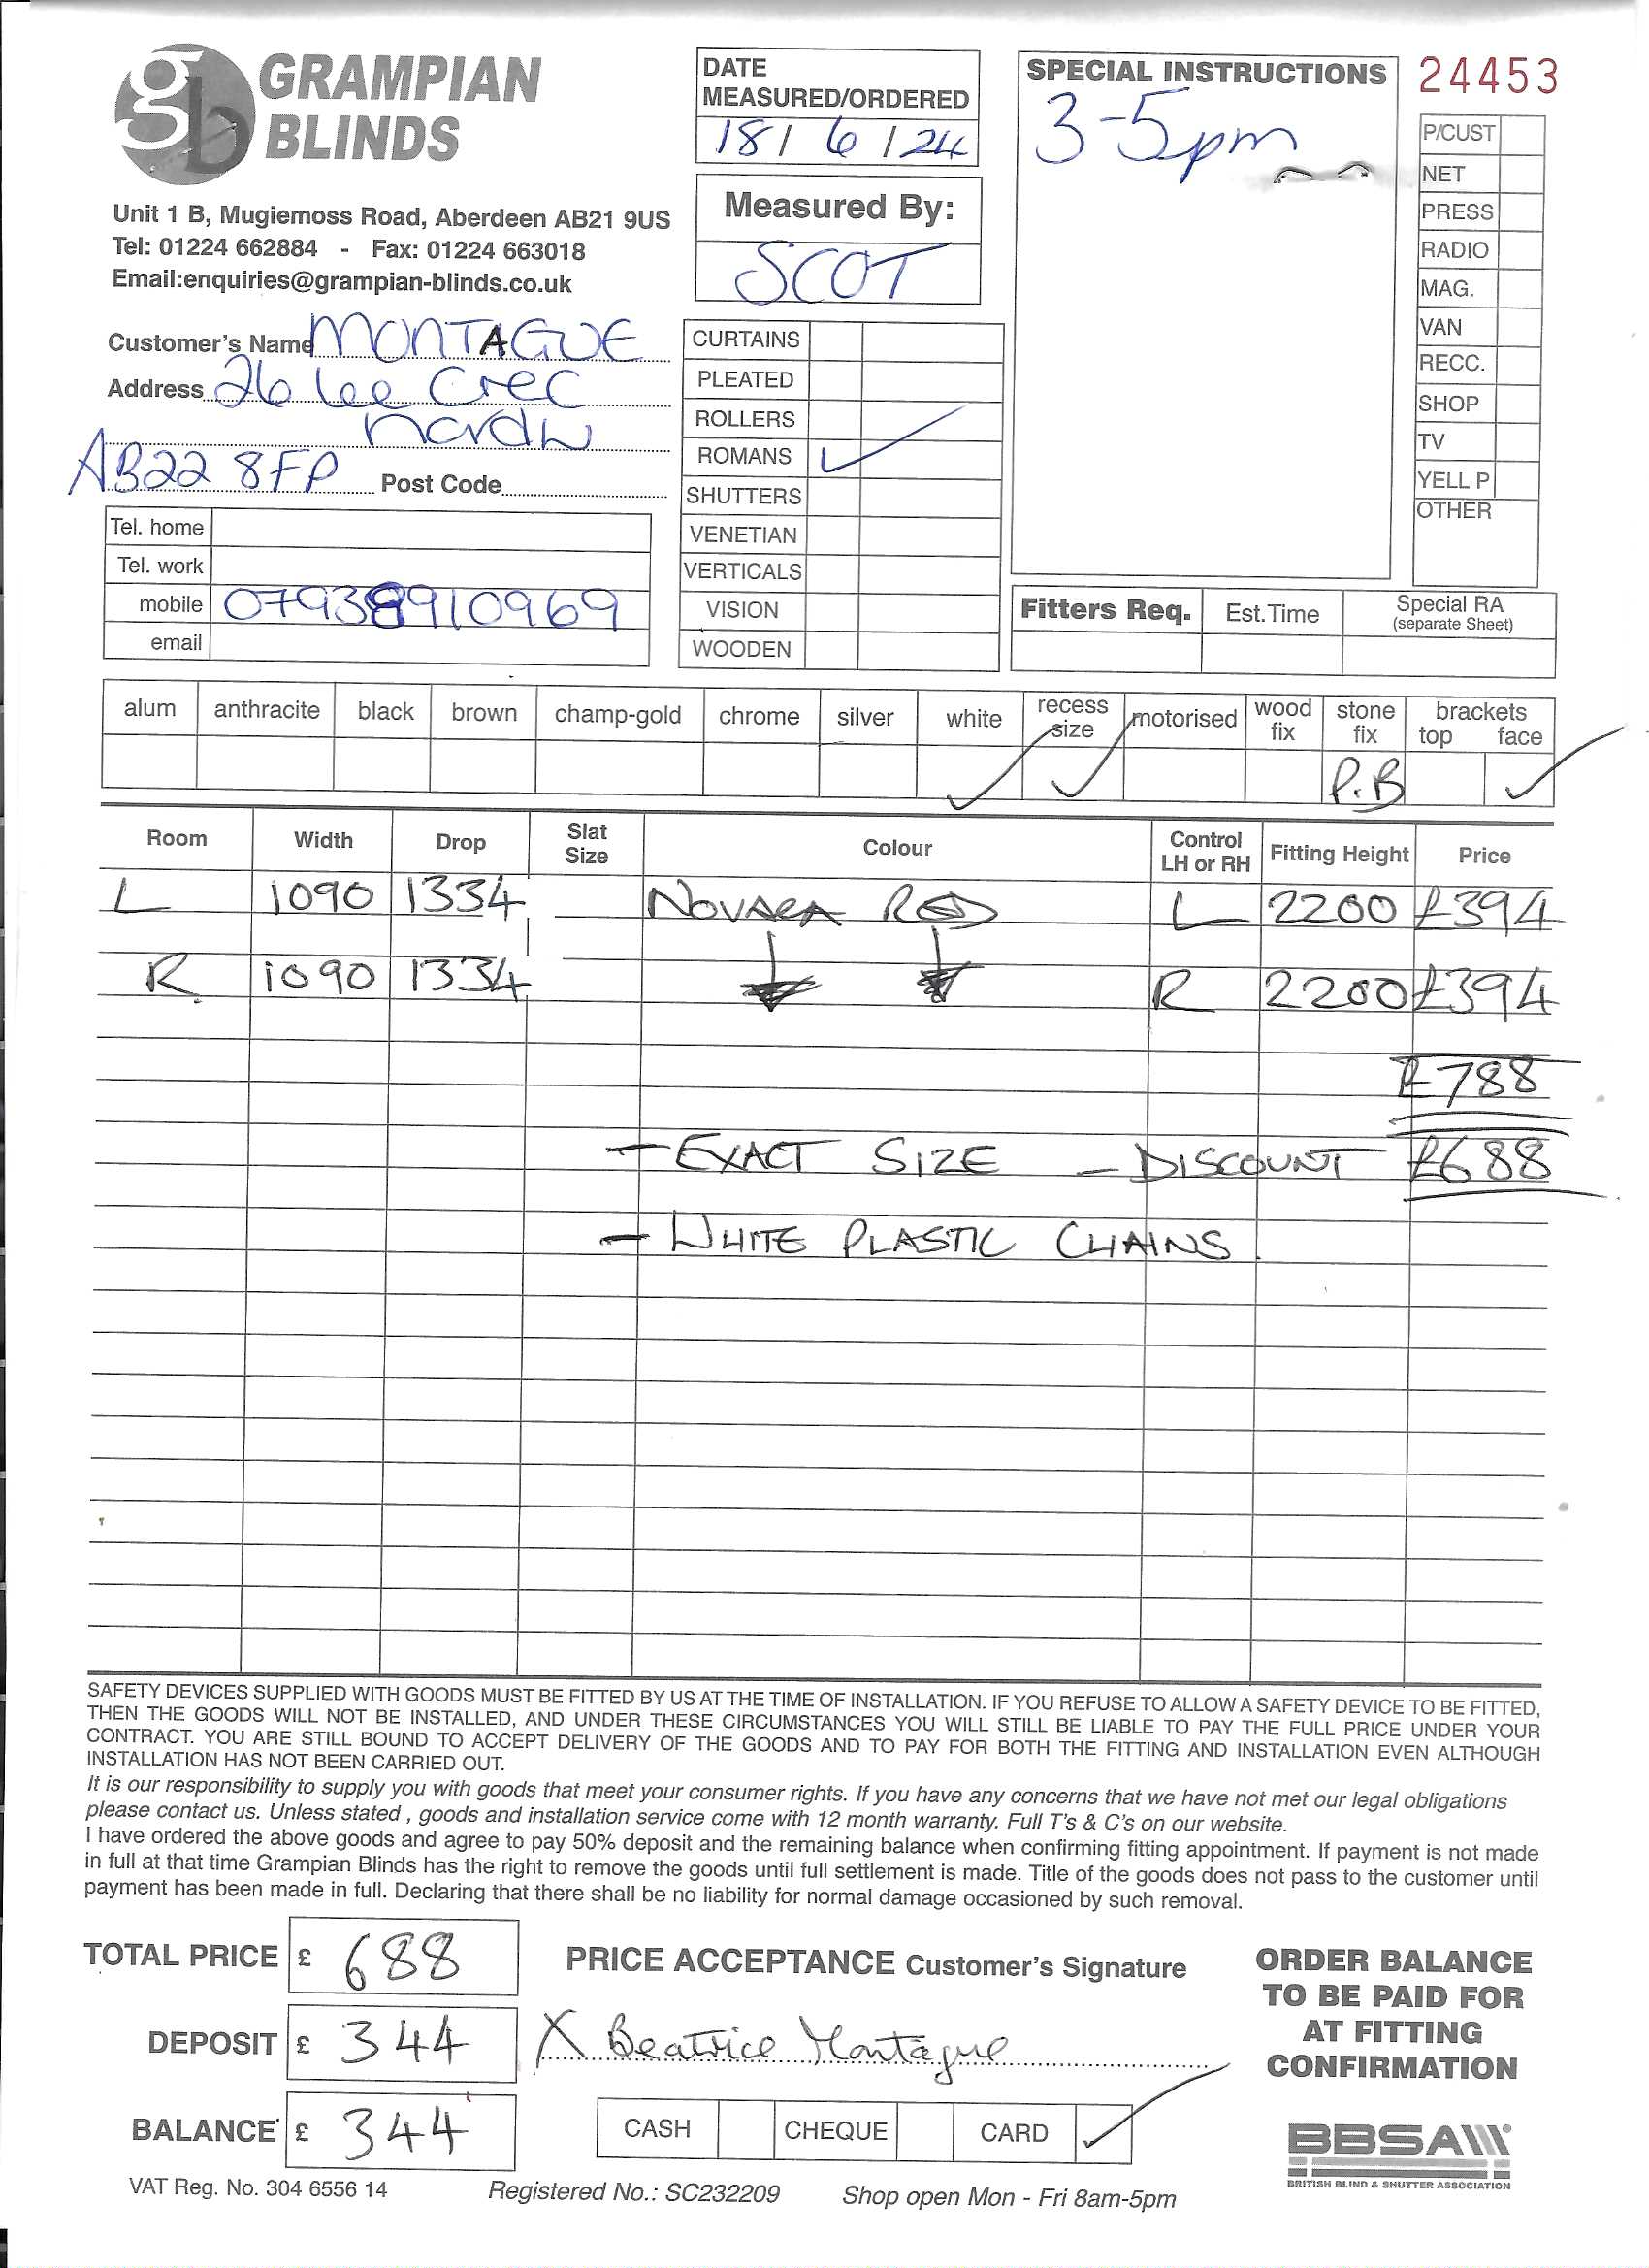 gb GRAMPIAN
BLINDS
Unit 1 B, Mugiemoss Road, Aberdeen AB21 9US
Tel: 01224 662884 - Fax: 01224 663018
Email:enquiries@grampian-blinds.co.uk
DATE
MEASURED/ORDERED
18/6/24
Measured By:
SCOT
SPECIAL INSTRUCTIONS
3-5pm
24453
P/CUST
NET
PRESS
RADIO
MAG.
VAN
RECC.
SHOP
TV
YELL P
OTHER
Customer's Name MONTAGUE
Address 26 Lee Cresc
AB22 8FP Post Code
Tel. home
Tel. work
mobile 07938910969
email
CURTAINS
PLEATED
ROLLERS
ROMANS ✓
SHUTTERS
VENETIAN
VERTICALS
VISION
WOODEN
Fitters Req. Est.Time Special RA
(separate Sheet)
alum anthracite black brown champ-gold chrome silver white recess size motorised wood fix stone fix brackets top face
✓ ✓ P.B ✓
Room Width Drop Slat Size Colour Control LH or RH Fitting Height Price
L 1090 1334 NOVARA RED L 2200 £394
R 1090 1334 R 2200 £394
£788
- EXACT SIZE - DISCOUNT £688
- WHITE PLASTIC CHAINS.
SAFETY DEVICES SUPPLIED WITH GOODS MUST BE FITTED BY US AT THE TIME OF INSTALLATION. IF YOU REFUSE TO ALLOW A SAFETY DEVICE TO BE FITTED,
THEN THE GOODS WILL NOT BE INSTALLED, AND UNDER THESE CIRCUMSTANCES YOU WILL STILL BE LIABLE TO PAY THE FULL PRICE UNDER YOUR
CONTRACT. YOU ARE STILL BOUND TO ACCEPT DELIVERY OF THE GOODS AND TO PAY FOR BOTH THE FITTING AND INSTALLATION EVEN ALTHOUGH
INSTALLATION HAS NOT BEEN CARRIED OUT.
It is our responsibility to supply you with goods that meet your consumer rights. If you have any concerns that we have not met our legal obligations
please contact us. Unless stated , goods and installation service come with 12 month warranty. Full T's & C's on our website.
I have ordered the above goods and agree to pay 50% deposit and the remaining balance when confirming fitting appointment. If payment is not made
in full at that time Grampian Blinds has the right to remove the goods until full settlement is made. Title of the goods does not pass to the customer until
payment has been made in full. Declaring that there shall be no liability for normal damage occasioned by such removal.
TOTAL PRICE £ 688
DEPOSIT £ 344
BALANCE £ 344
PRICE ACCEPTANCE Customer's Signature
X Beatrice Montague
CASH CHEQUE CARD ✓
ORDER BALANCE
TO BE PAID FOR
AT FITTING
CONFIRMATION
BBSA
BRITISH BLIND & SHUTTER ASSOCIATION
VAT Reg. No. 304 6556 14 Registered No.: SC232209 Shop open Mon - Fri 8am-5pm